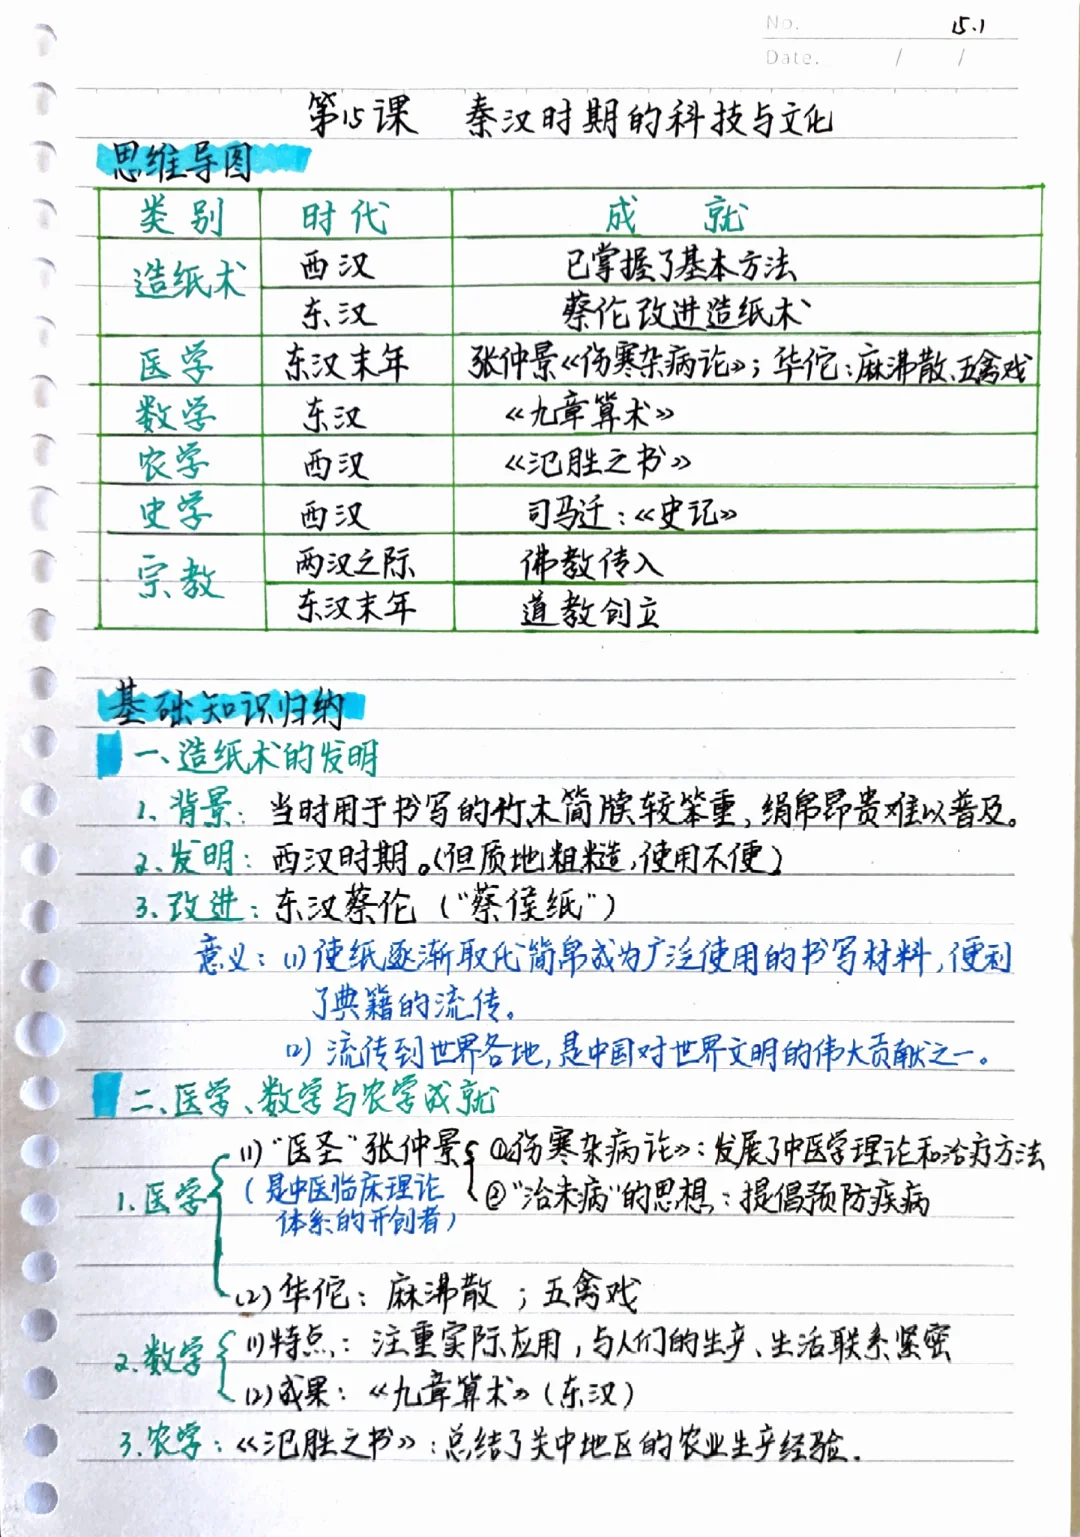 No. 15.1
Date. / /
第15课 秦汉时期的科技与文化
思维导图
类别 时代 成就
造纸术 西汉 已掌握了基本方法
东汉 蔡伦改进造纸术
医学 东汉末年 张仲景《伤寒杂病论》；华佗：麻沸散、五禽戏
数学 东汉 《九章算术》
农学 西汉 《氾胜之书》
史学 西汉 司马迁：《史记》
宗教 两汉之际 佛教传入
东汉末年 道教创立
基础知识归纳
一、造纸术的发明
1、背景：当时用于书写的竹木简牍较笨重，绢帛昂贵难以普及。
2、发明：西汉时期。（但质地粗糙，使用不便）
3.改进：东汉蔡伦（“蔡侯纸”）
意义：(1)使纸逐渐取代简帛成为广泛使用的书写材料，便利
了典籍的流传。
(2)流传到世界各地，是中国对世界文明的伟大贡献之一。
二、医学、数学与农学成就
(1)“医圣”张仲景 ①《伤寒杂病论》：发展了中医学理论和治疗方法
1.医学 （是中医临床理论 ②“治未病”的思想：提倡预防疾病
体系的开创者）
(2)华佗：麻沸散；五禽戏
2.数学 (1)特点：注重实际应用，与人们的生产、生活联系紧密
(2)成果：《九章算术》（东汉）
3.农学：《氾胜之书》：总结了关中地区的农业生产经验.